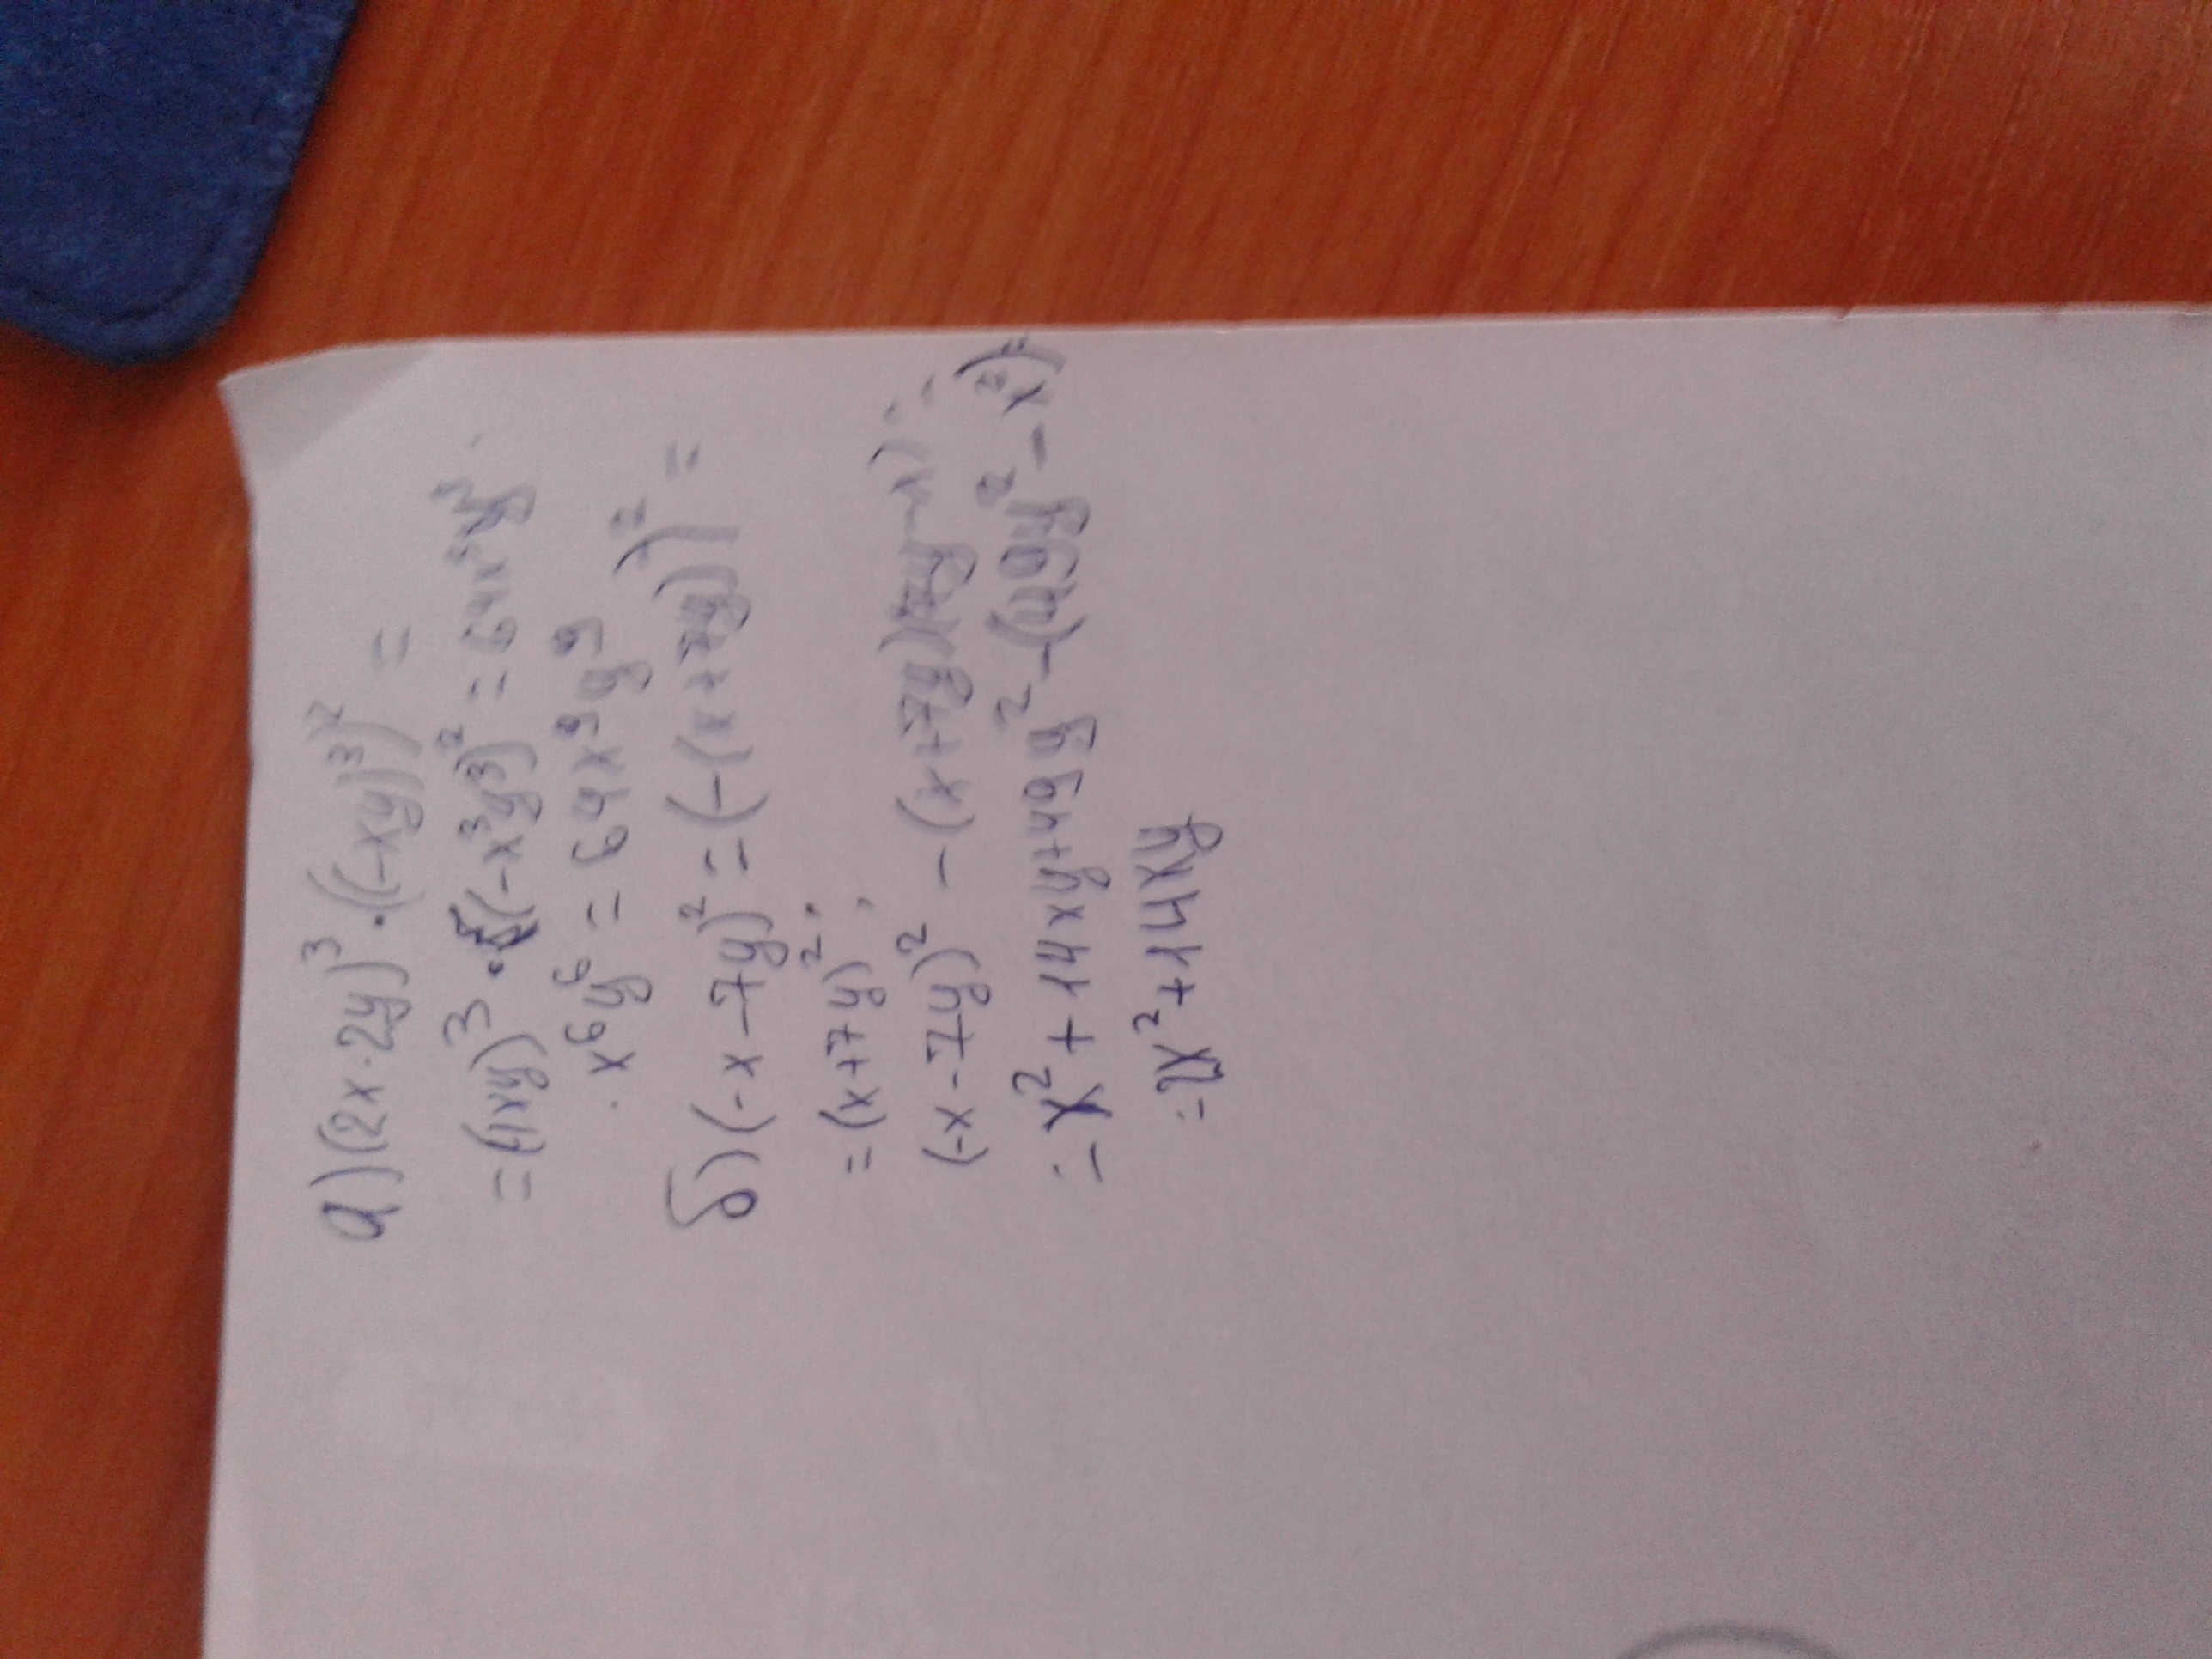 а) (2x · 2y)³ · ((-xy)³)² =
= (4xy)³ · (-x³y³)² = 64x³y³ ·
· x⁶y⁶ = 64x⁹y⁹
б) (-x-7y)² = (-(x+7y))² =
= (x+7y)²;
(-x-7y)² - (x+7y)(7y-x) =
= x² + 14xy + 49y² - (49y² - x²) =
= 2x² + 14xy